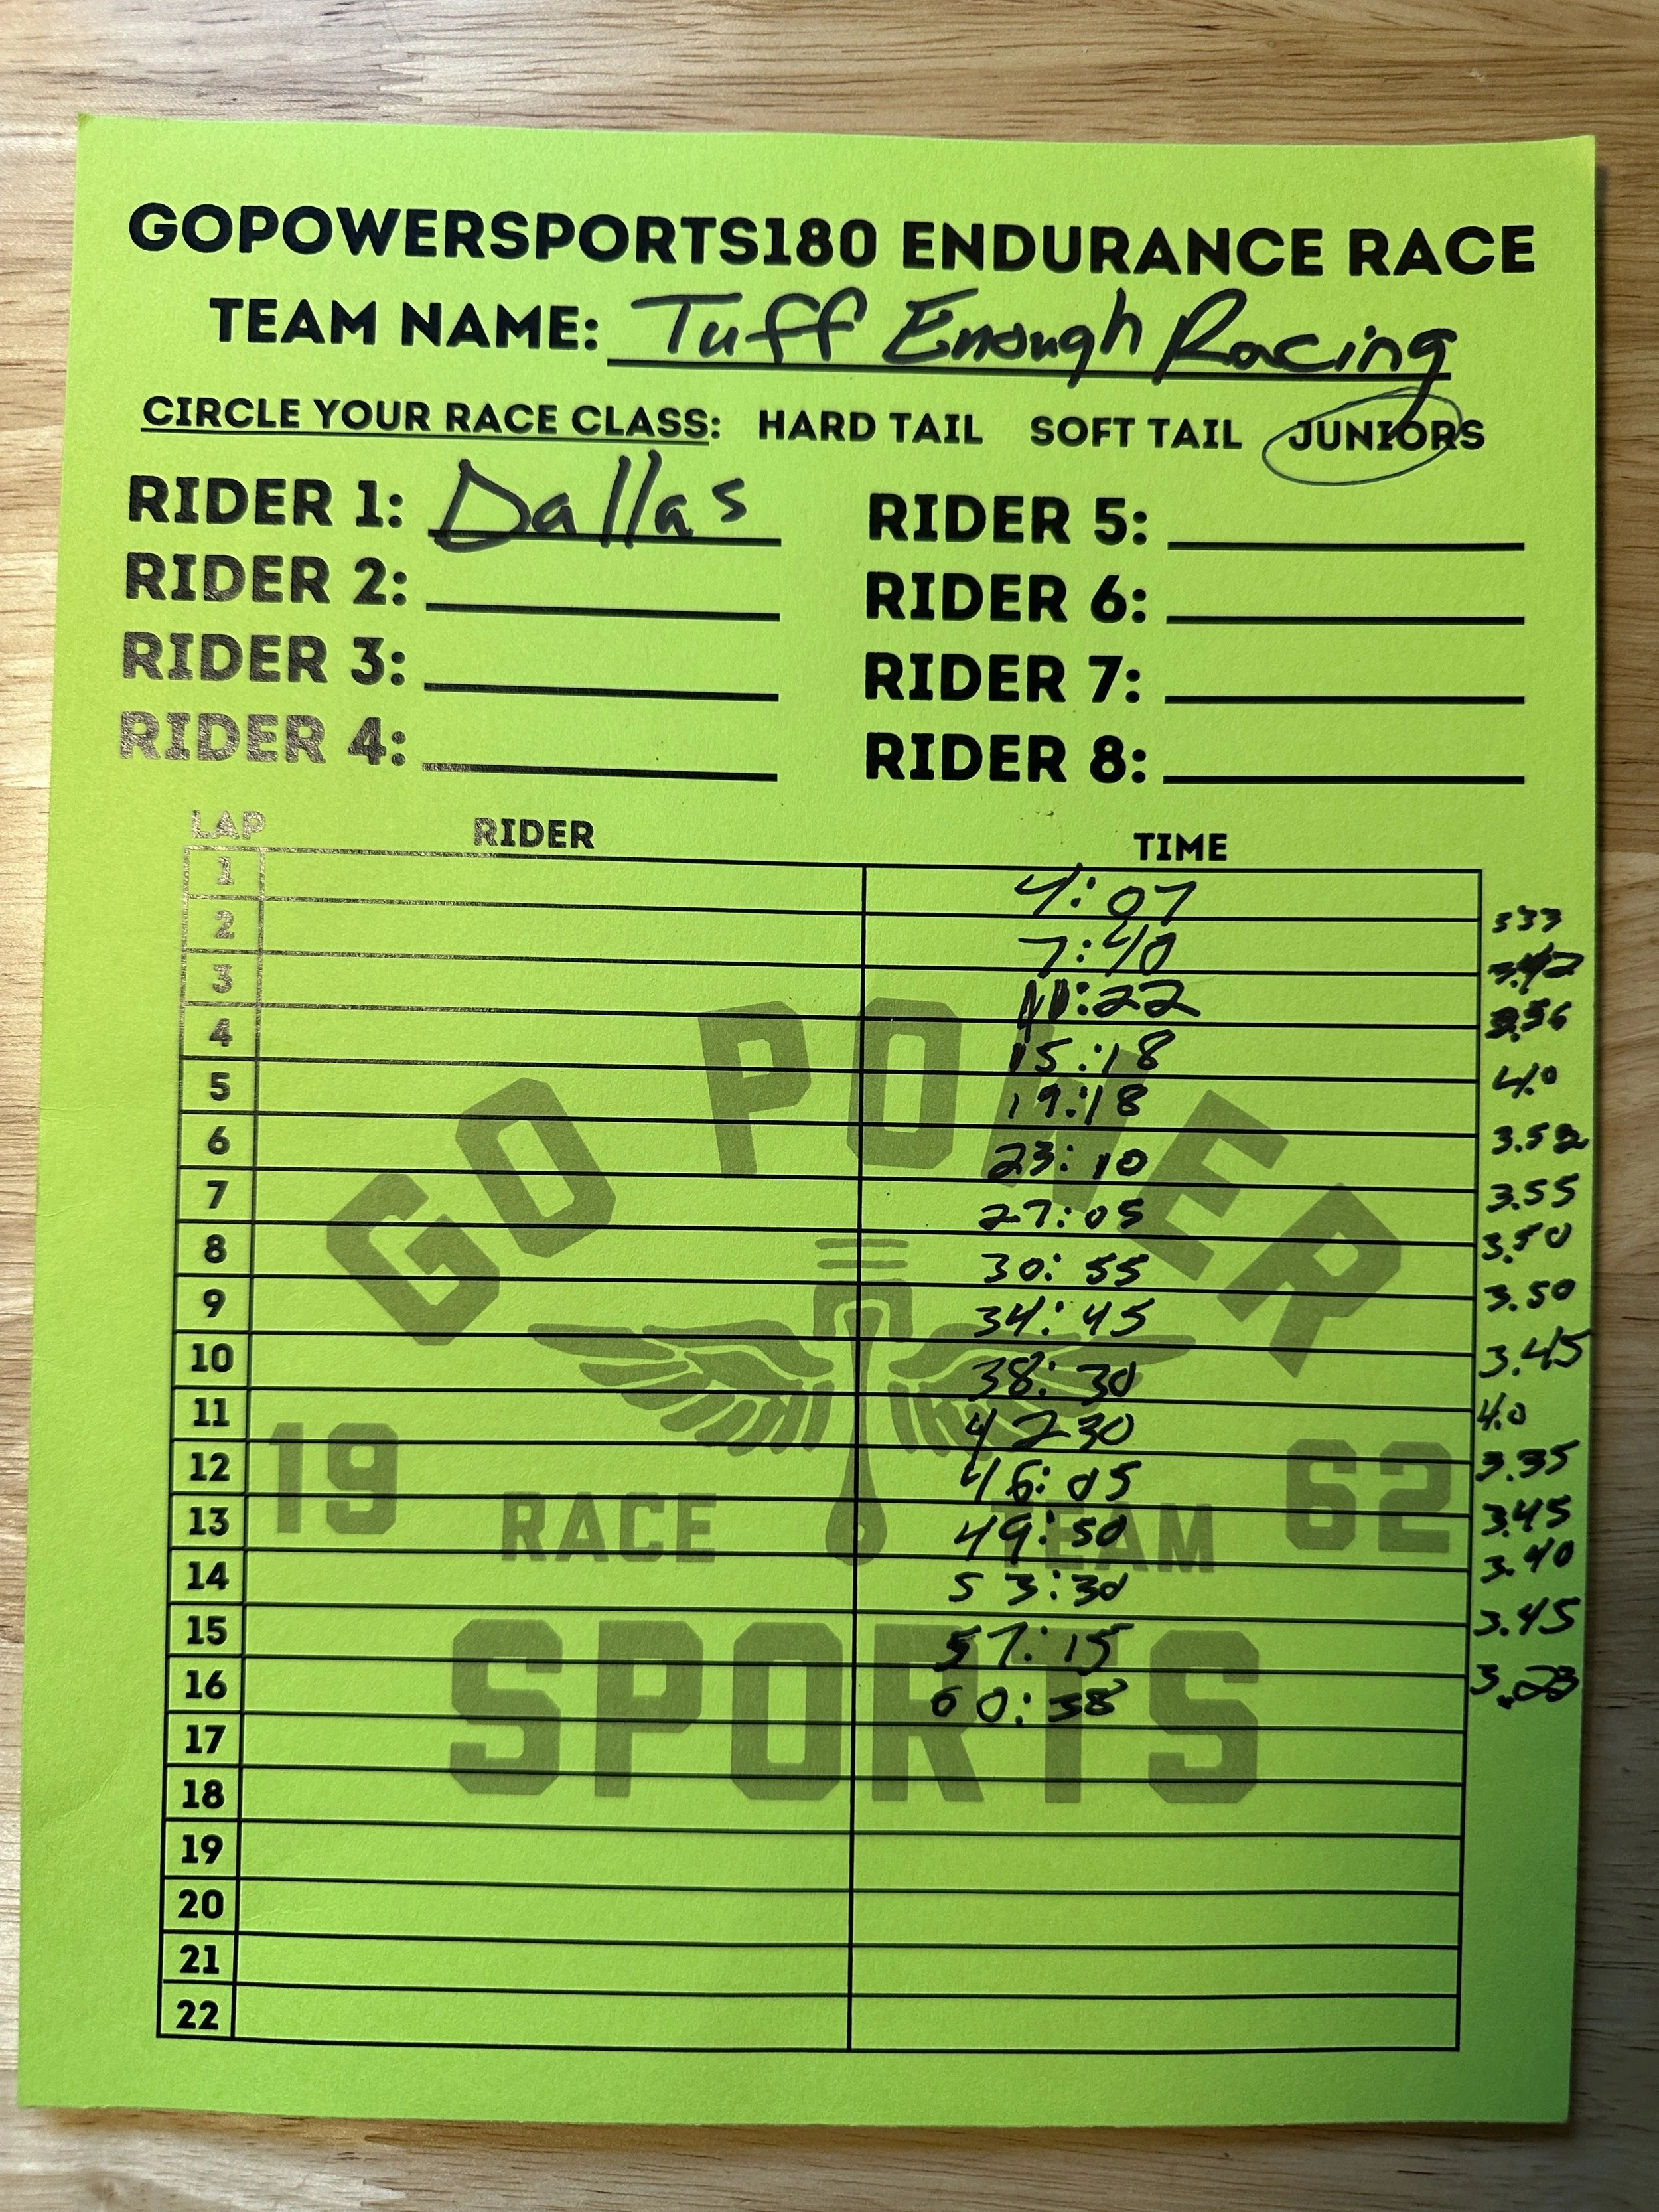 GOPOWERSPORTS180 ENDURANCE RACE
TEAM NAME: Tuff Enough Racing
CIRCLE YOUR RACE CLASS: HARD TAIL SOFT TAIL JUNIORS
RIDER 1: Dallas RIDER 5:
RIDER 2: RIDER 6:
RIDER 3: RIDER 7:
RIDER 4: RIDER 8:
LAP RIDER TIME
1 4:07
2 7:40 333
3 11:22 3.42
4 15:18 3.56
5 19:18 4.0
6 23:10 3.52
7 27:05 3.55
8 30:55 3.50
9 34:45 3.50
10 38:30 3.45
11 4230 4.0
12 46:05 3.35
13 49:50 3.45
14 53:30 3.40
15 57:15 3.45
16 60:38 3.23
17
18
19
20
21
22
GO POWER
19 62
RACE TEAM
SPORTS